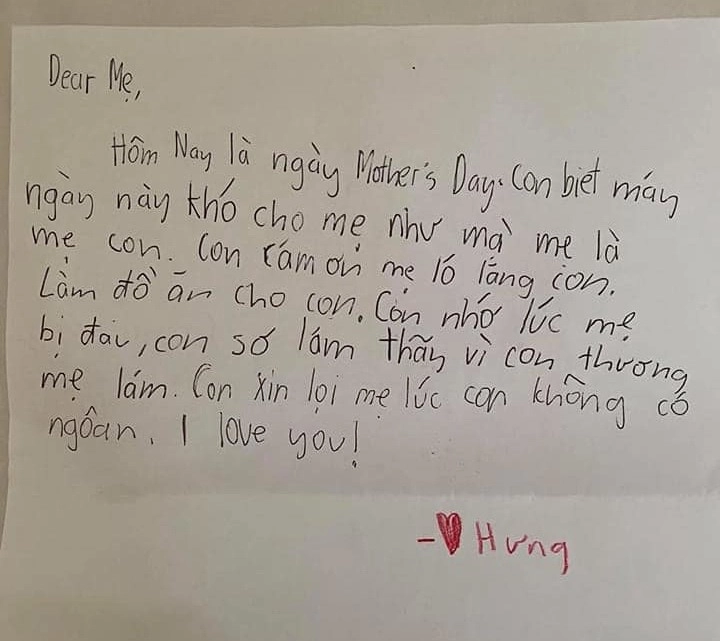 Dear Mẹ,
Hôm Nay là ngày Mother's Day. Con biết máy
ngày này khó cho mẹ như mà mẹ là
mẹ con. Con cám ơn mẹ ló lắng con.
Làm đồ ăn cho con. Còn nhớ lúc mẹ
bị đau, con sớ lám thãy vì con thương
mẹ lám. Con xin lọi mẹ lúc con không có
ngôan. I love you!
-♥ Hưng